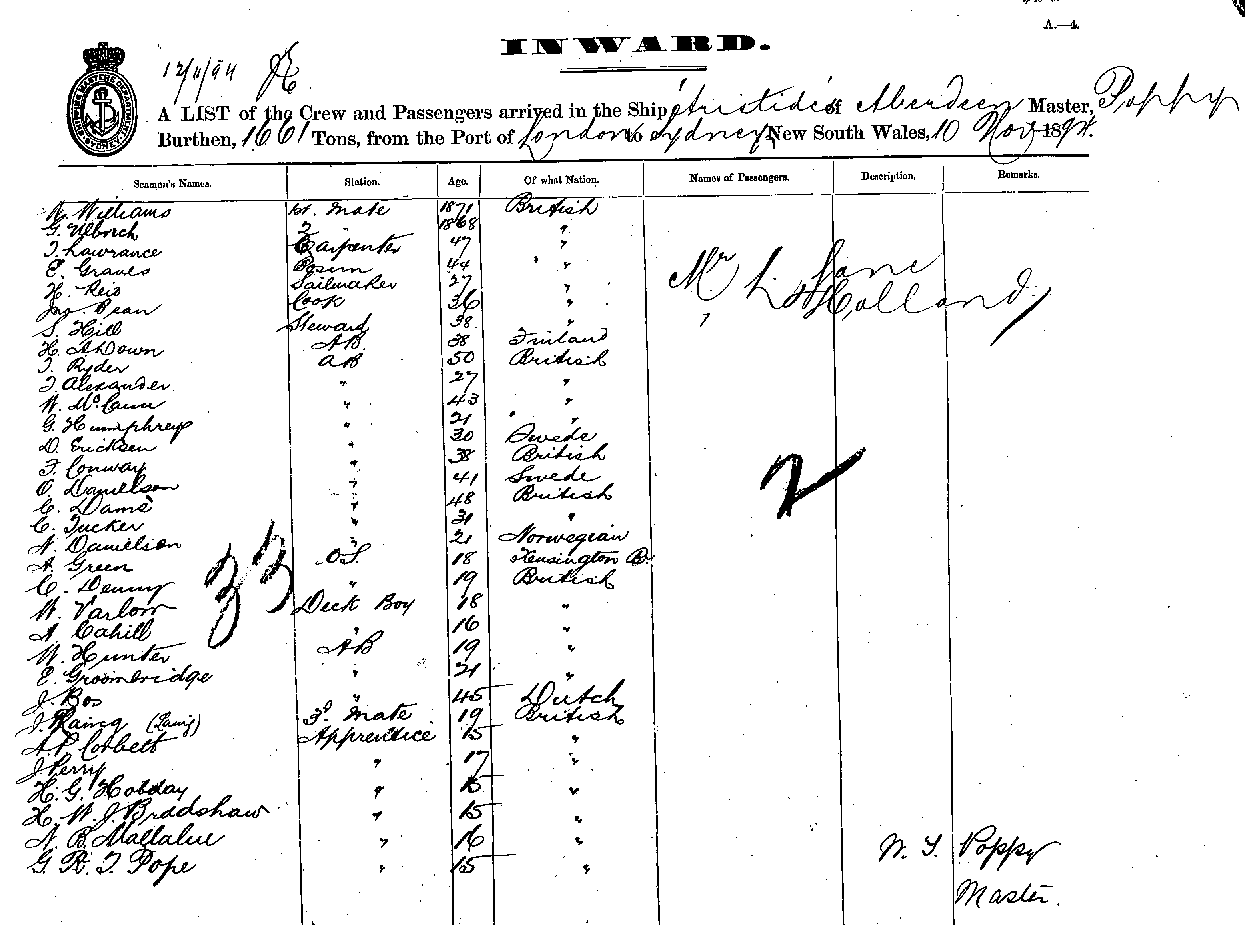 A.—4.
INWARD.
12/11/94
A LIST of the Crew and Passengers arrived in the Ship Aristides of Aberdeen Master, Poppy
Burthen, 1661 Tons, from the Port of London to Sydney, New South Wales, 10 Nov 1894.
Seamen's Names. Station. Age. Of what Nation. Names of Passengers. Description. Remarks.
W. Williams 1st. Mate 1871 British
G. Ulbrich 2 1868 "
T. Lawrance Carpenter 47 "
E. Graves Bosun 44 " "
H. Reid Sailmaker 27 "
Jas. Bean Cook 36 "
S. Hill Steward 38 "
Mr L. Lane
" Holland
H. AhDown AB 38 Finland
T. Ryder AB 50 British
T. Alexander " 27 "
W. McCann " 43 "
G. Humphreys " 21 " "
D. Ericksen " 30 Swede
F. Conway " 38 British
O. Danielson " 41 Swede
C. Dams " 48 British
C. Tucker " 31 "
N. Danielson " 21 Norwegian
2
A. Green O.S. 18 Kensington B.
C. Denny " 19 British
33
W. Varlow Deck Boy 18 "
A. Cahill 16 "
W. Hunter AB 19 "
E. Groombridge " 21 "
J. Bos " 45 Dutch
J. Raing (Laing) 3d. Mate 19 British
A. P. Corbett Apprentice 15 "
J Perry " 17 "
H. G. Hobday " 15 "
H. W. J. Bradshaw " 15 "
N. B. Mallalue " 16 "
G. R. T. Pope " 15 "
W. S. Poppy
Master.